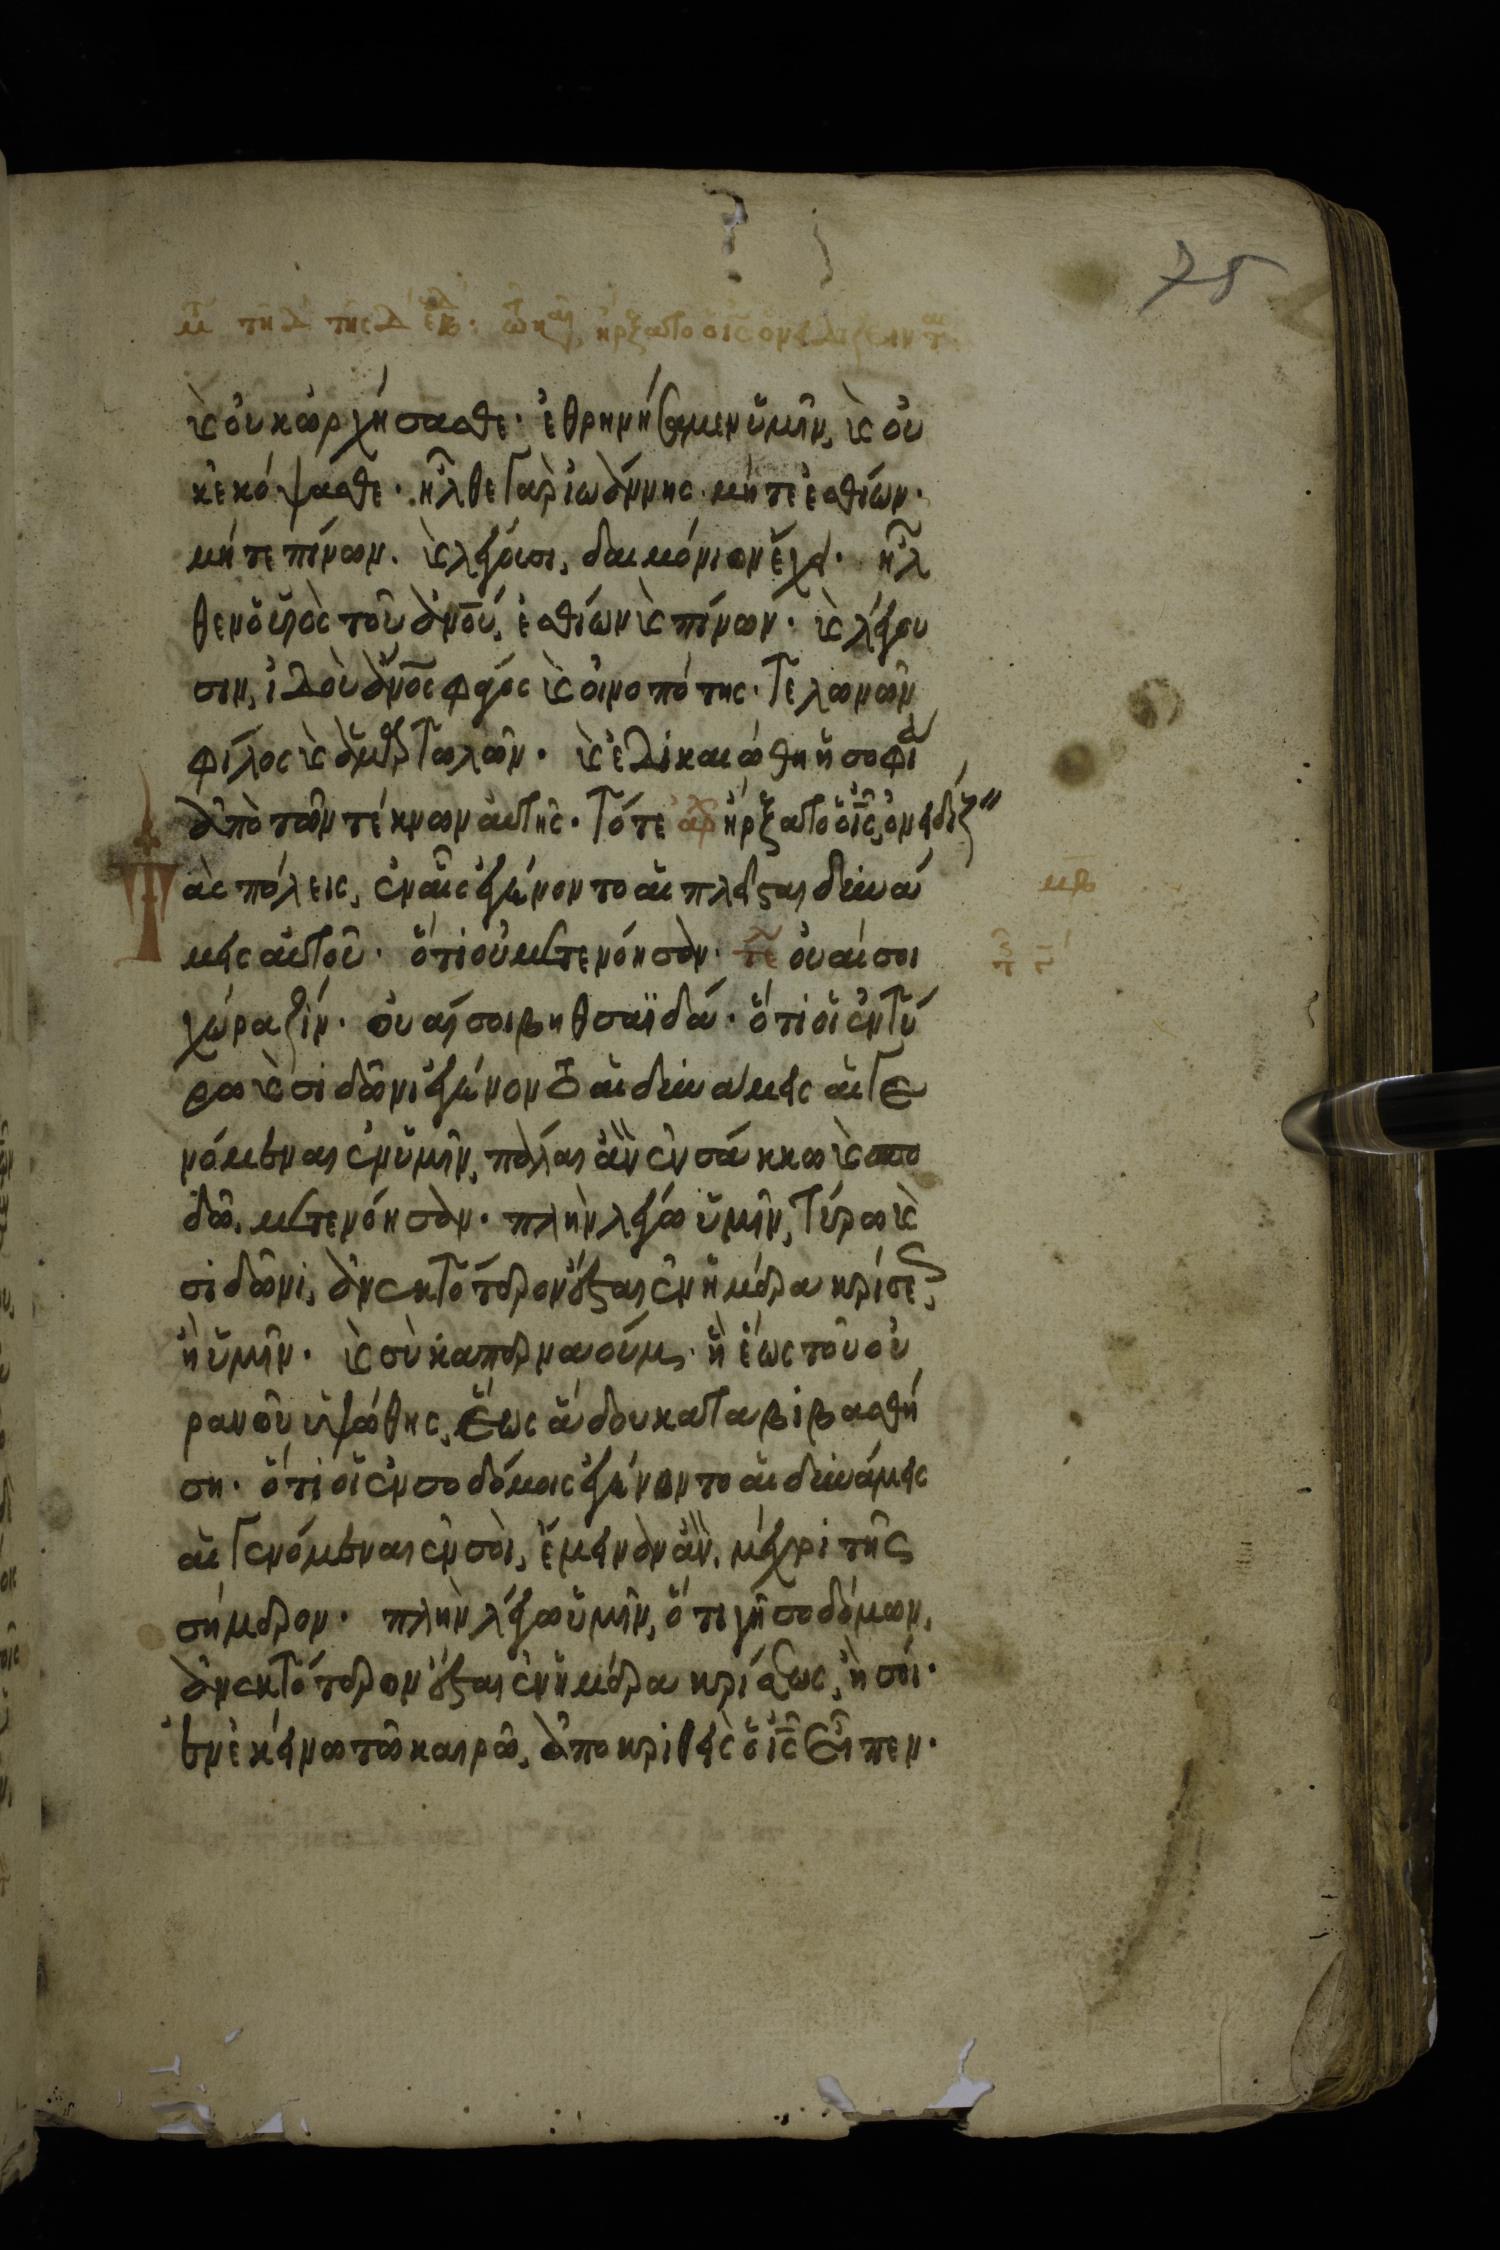 75
τῇ δ τῆς δ ἑβδ: τῷ καιρῷ, ἤρξατο ὁ ἰς ὀνειδίζειν τ
κ οὐκ ὠρχήσασθε· ἐθρηνήσαμεν ὑμῖν, κ οὐ
κ ἐκόψασθε· ἦλθε γὰρ ἰωάννης μήτε ἐσθίων·
μήτε πίνων. κ λέγουσι, δαιμόνιον ἔχει· ἦλ
θεν ὁ υἱὸς τοῦ ἀνου, ἐσθίων κ πίνων· κ λέγου
σιν, ἰδοὺ ἀνος φάγος κ οἰνοπότης· τελωνῶν
φίλος κ ἁμαρτωλῶν· κ ἐδικαιώθη ἡ σοφία
ἀπὸ τῶν τέκνων αὐτῆς· τότε ἀρ ἤρξατο ὁ ἰς, ὀνειδίζ
Τὰς πόλεις, ἐν αἷς ἐγένοντο αἱ πλεῖσται δυνά
μεις αὐτοῦ· ὅτι οὐ μετενόησαν· τε οὐαί σοι
χώραζίν· οὐαί σοι βηθσαϊδά· ὅτι εἰ ἐν τύ
ρω κ σιδῶνι ἐγένοντο αἱ δυνάμεις αἱ γε
νόμεναι ἐν ὑμῖν, πάλαι ἂν ἐν σάκκω κ σπο
δῶ, μετενόησαν· πλὴν λέγω ὑμῖν, τύρω κ
σιδῶνι, ἀνεκτότερον ἔσται ἐν ἡμέρα κρίσεως,
ἢ ὑμῖν· κ σὺ καπερναούμ, ἡ ἕως τοῦ οὐ
ρανοῦ ὑψώθης, ἕως ἅδου καταβιβασθή
ση· ὅτι εἰ ἐν σοδόμοις ἐγένοντο αἱ δυνάμεις
αἱ γενόμεναι ἐν σοὶ, ἔμεινον ἂν, μέχρι τῆς
σήμερον· πλὴν λέγω ὑμῖν, ὅτι γῆ σοδόμων,
ἀνεκτότερον ἔσται ἐν ἡμέρα κρίσεως, ἢ σοί·
ἐν ἐκείνω τῶ καιρῶ, ἀποκριθεὶς ὁ ἰς εἶπεν·